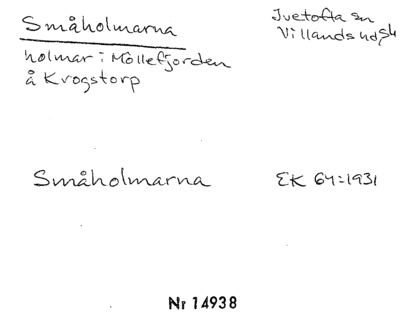 Småholmarna
Ivetofta sn
Villands hd, Sk
holmar i Möllefjorden
å Krogstorp
Småholmarna
EK 64:1931
Nr 14938